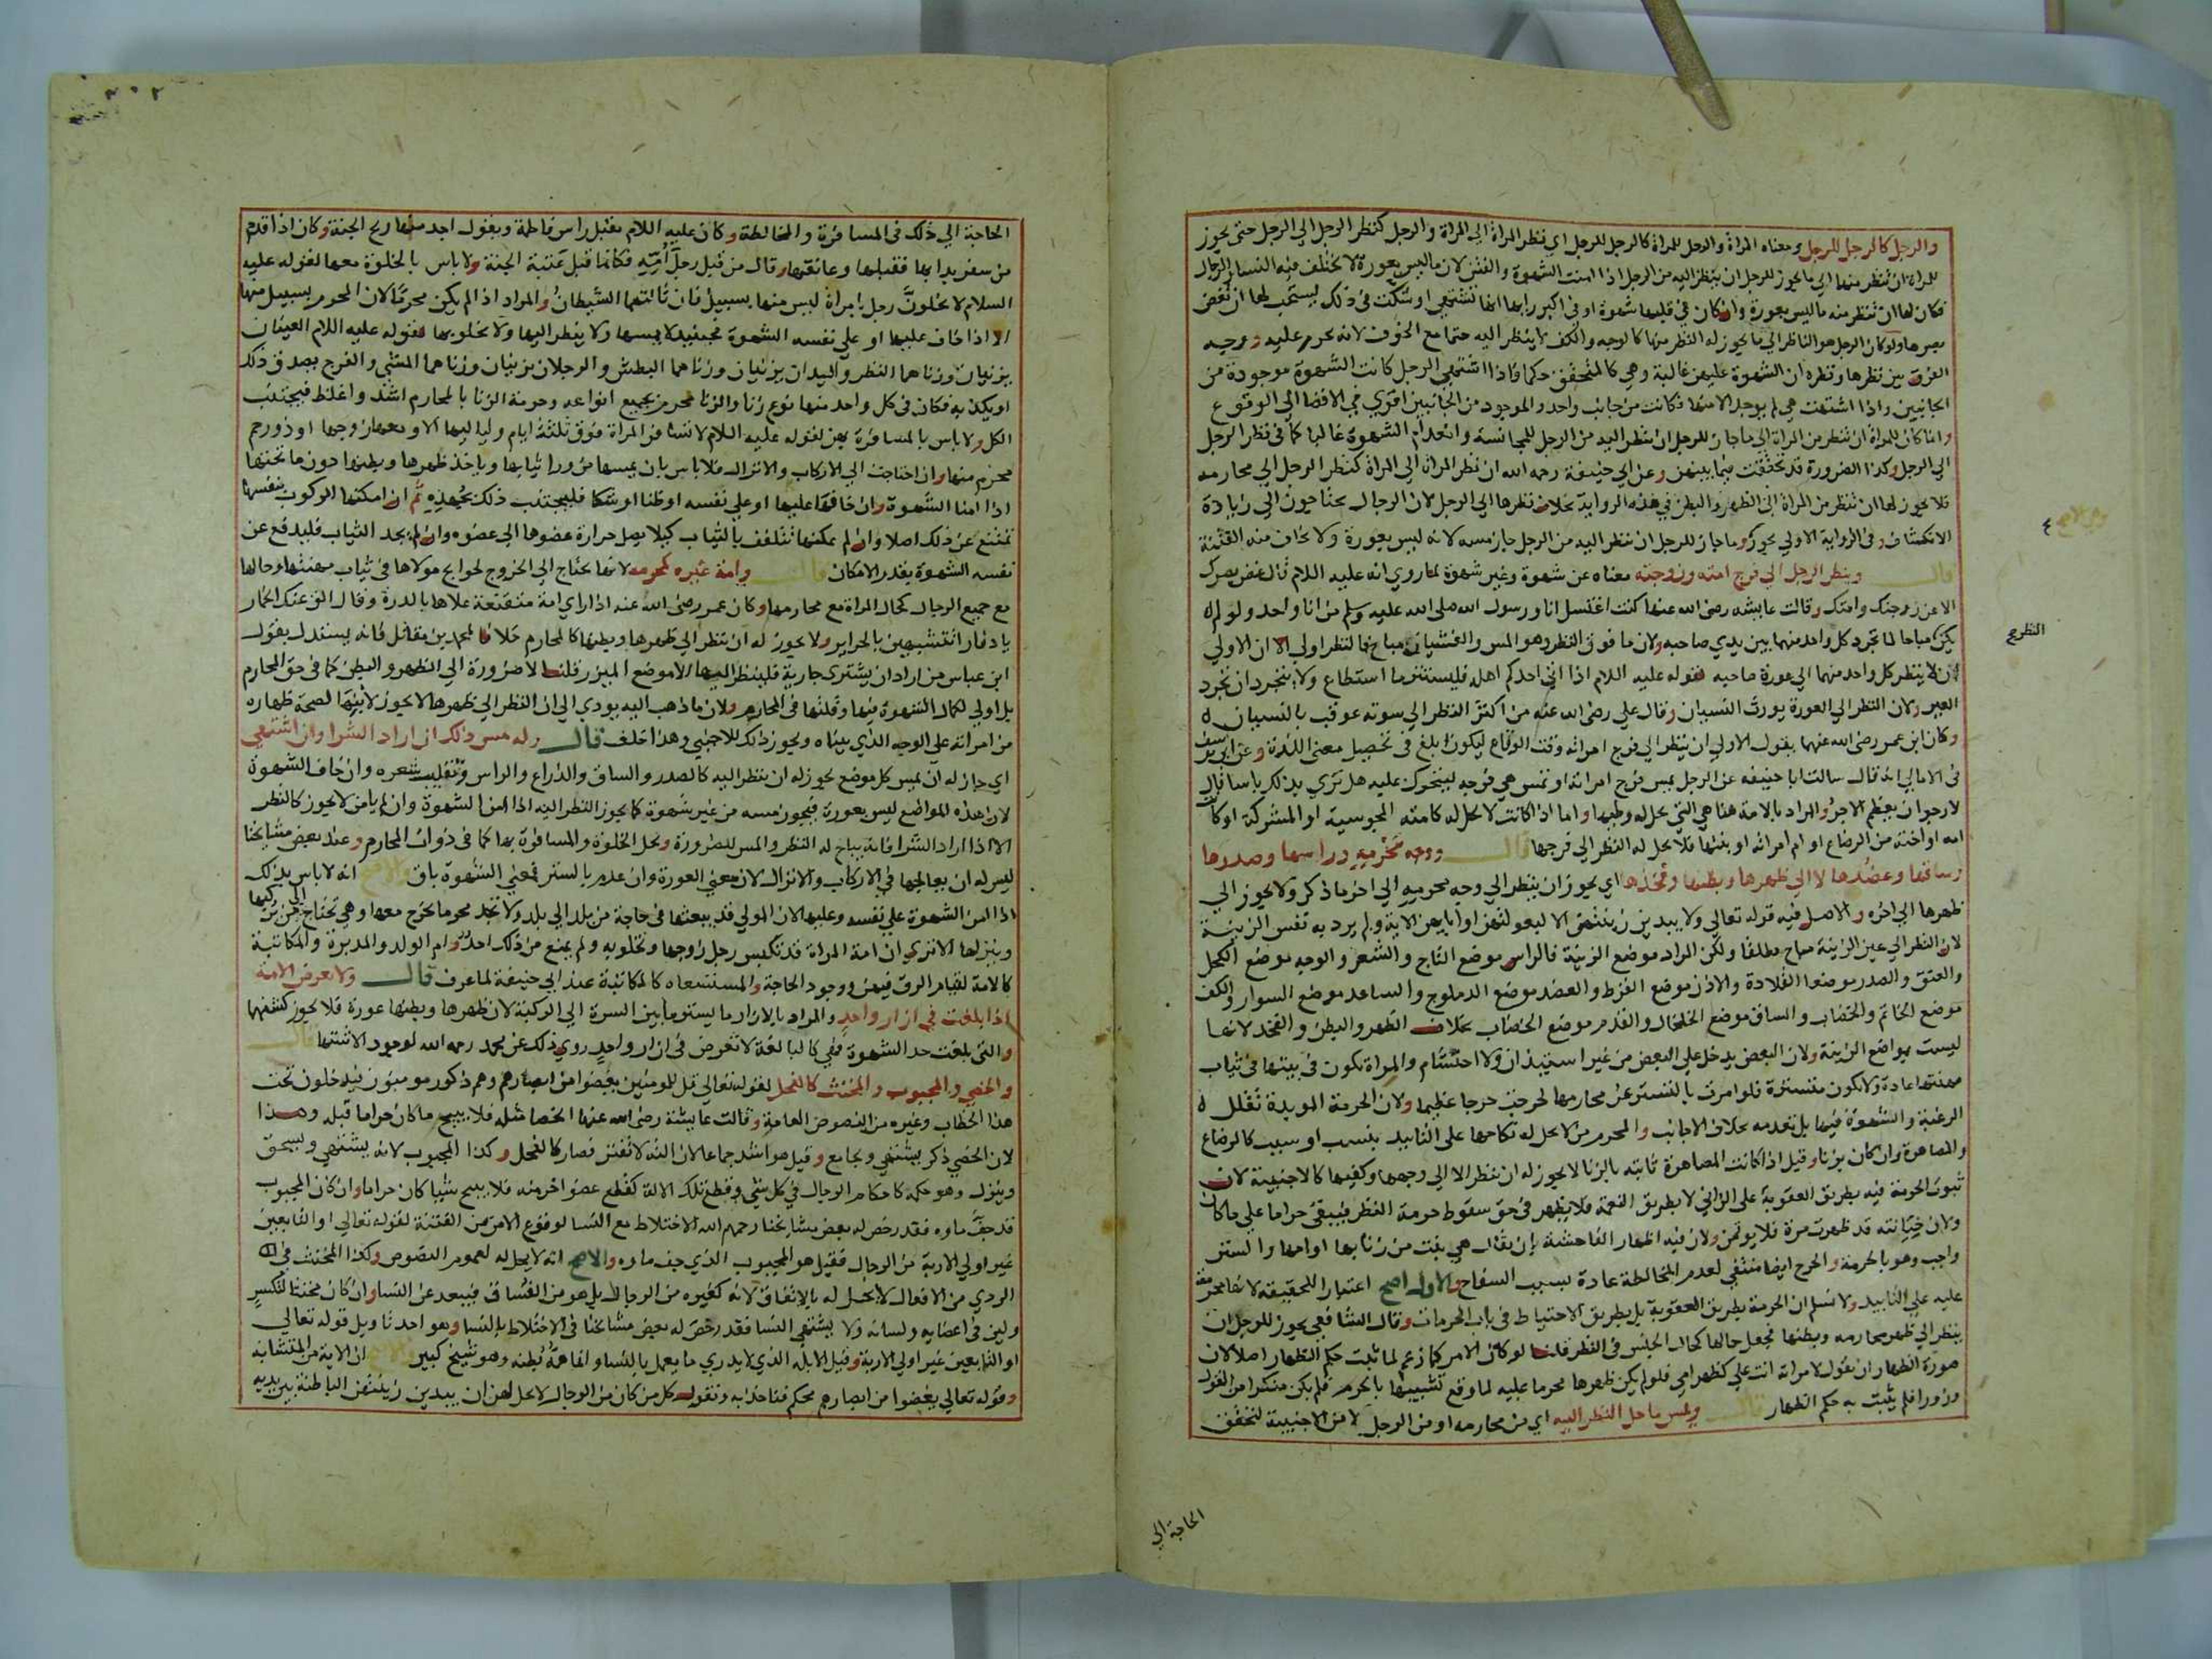 والرجل كالرجل للرجل ومعناه المراة والرجل للمراة كالرجل للرجل اي نظر المراة الي المراة والرجل كنظر الرجل الي الرجل حتي يجوز
للمراة ان تنظر منها الي ما يجوز للرجل ان ينظر اليه من الرجل اذا امنت الشهوة والفتن لان ما ليس بعورة لا يختلف فيه النسا والرجال
فكان لها ان تنظر منه ما ليس بعورة وان كان في قلبها شهوة او في اكبر رايها انها تشتهي او شكت في ذلك يستحب لها ان تغض
بصرها ولو كان الرجل هو الناظر الي ما يجوز له النظر منها كالوجه والكف لا ينظر اليه حتما مع الخوف لانه يحرم عليه ووجه
الفرق بين نظرها ونظره ان الشهوة عليهن غالبة وهي كالمتحقق حكما فاذا اشتهي الرجل كانت الشهوة موجودة من
الجانبين واذا اشتهت هي لم يوجد الا منها فكانت من جانب واحد والموجود من الجانبين اقوي في الافضا الي الوقوع
وانما كان للمراة ان تنظر من المراة الي ما جاز للرجل ان ينظر اليه من الرجل للمجانسة وانعدام الشهوة غالبا كما في نظر الرجل
الي الرجل وكذا الضرورة قد تحققت فيما بينهن وعن ابي حنيفة رحمه الله ان نظر المراة الي المراة كنظر الرجل الي محارمه
فلا يجوز لها ان تنظر من المراة الي الظهر والبطن في هذه الرواية بخلاف نظرها الي الرجل لان الرجال يحتاجون الي زيادة
الانكشاف وفي الرواية الاولي يجوز وما جاز للرجل ان ينظر اليه من الرجل جاز مسه لانه ليس بعورة ولا يخاف منه الفتنة
قال وينظر الرجل الي فرج امته وزوجته معناه عن شهوة وغير شهوة لما روي انه عليه اللام قال غض بصرك
الا عن زوجتك وامتك وقالت عايشه رضي الله عنها كنت اغتسل انا ورسول الله صلي الله عليه وسلم من انا واحد ولو لم
يكن مباحا لما تجرد كل واحد منهما بين يدي صاحبه ولان ما فوق النظر وهو المس والغشيان مباح فالنظر اولي الا ان الاولي
ان لا ينظر كل واحد منهما الي عورة صاحبه لقوله عليه اللام اذا اتي احدكم اهله فليستتر ما استطاع ولا يتجردان تجرد
العير ولان النظر الي العورة يورث النسيان وقال علي رضي الله عنه من اكثر النظر الي سوته عوقب بالنسيان
وكان ابن عمر رضي الله عنهما يقول الاولي ان ينظر الي فرج امراته وقت الوقاع ليكون ابلغ في تحصيل معني اللذة وعن ابي يوسف
في الامالي انه قال سالت ابا حنيفه عن الرجل يمس فرج امراته او تمس هي فرجه ليتحرك عليه هل تري بذلك باسا قال
لا ارجو ان يعظم الاجر والمراد بالامة هنا هي التي يحل له وطيها واما اذا كانت لا تحل له كامته المجوسية او المشركة او كانت
امه او اخته من الرضاع او ام امراته او بنتها فلا يحل له النظر الي فرجها قال ووجه محرمه وراسها وصدرها
وساقها وعضدها لا الي ظهرها وبطنها وفخذها اي يجوز ان ينظر الي وجه محرمه الي اخر ما ذكر ولا يجوز الي
ظهرها الي اخره والاصل فيه قوله تعالي ولا يبدين زينتهن الا لبعولتهن او ابايهن الاية ولم يرد به نفس الزينة
لان النظر الي عين الزينة مباح مطلقا ولكن المراد موضع الزينة فالراس موضع التاج والشعر والوجه موضع الكحل
والعنق والصدر موضعا القلادة والاذن موضع القرط والعضد موضع الدملوج والساعد موضع السوار والكف
موضع الخاتم والخضاب والساق موضع الخلخال والقدم موضع الخضاب بخلاف الظهر والبطن والفخذ لانها
ليست بمواضع الزينة ولان البعض يدخل علي البعض من غير استيذان ولا احتشام والمراة تكون في بيتها في ثياب
مهنتها عادة ولا تكون متسترة فلو امرت بالتستر عن محارمها لحرجت حرجا عظيما ولان الحرمة الموبدة تقلل
الرغبة والشهوة فيها بل تعدمه بخلاف الاجانب والمحرم من لا يحل له نكاحها علي التابيد بنسب او سبب كالرضاع
والمصاهرة وان كان بزنا وقيل اذا كانت المصاهرة ثابته بالزنا لا يجوز له ان ينظر الا الي وجهها وكفيها كالاجنبية لان
ثبوت الحرمة فيه بطريق العقوبة علي الزاني لا بطريق النعمة فلا يظهر في حق سقوط حرمة النظر فيبقي حراما علي ما كان
ولان خيانته قد ظهرت مرة فلا يوتمن ولان فيه اظهار الفاحشة بان يقال هي بنت من زنا بها او امها والستر
واجب وهو بالحرمة والحرج ايضا منتفي لعدم المخالطة عادة بسبب السفاح والاول اصح اعتبارا للحقيقة لانها محرمة
عليه علي التابيد ولا نسلم ان الحرمة بطريق العقوبة بل بطريق الاحتياط في باب الحرمات وقال الشافعي يجوز للرجل ان
ينظر الي ظهر محارمه وبطنها فجعل حالها كحال الجنس في النظر قلنا لو كان الامر كما زعم لما ثبت حكم الظهار اصلا لان
صورة الظهار ان يقول لامراته انت علي كظهر امي فلو لم يكن ظهرها محرما عليه لما وقع تشبيهها بالمحرم فلم يكن منكرا من القول
وزورا فلم يثبت به حكم الظهار قال ويمس ما حل النظر اليه اي من محارمه او من الرجل لا من الاجنبية لتحقق
النظر ع
الحاجة الي
الحاجة الي ذلك في المسافرة والمخالطة وكان عليه اللام يقبل راس فاطمة ويقول اجد منها ريح الجنة وكان اذا قدم
من سفر بدا بها فقبلها وعانقها وقال من قبل رجل امه فكانما قبل عتبة الجنة ولا باس بالخلوة معها لقوله عليه
السلام لا يخلون رجل بامراة ليس منها بسبيل فان ثالثهما الشيطان والمراد اذا لم يكن محرما لان المحرم بسبيل منها
الا اذا خاف عليها او علي نفسه الشهوة فحينيذ لا يمسها ولا ينظر اليها ولا يخلو بها لقوله عليه اللام العينان
يزنيان وزناهما النظر واليدان يزنيان وزناهما البطش والرجلان يزنيان وزناهما المشي والفرج يصدق ذلك
او يكذبه فكان في كل واحد منها نوع زنا والزنا محرم بجميع انواعه وحرمة الزنا بالمحارم اشد واغلظ فيجتنب
الكل ولا باس بالمسافرة بهن لقوله عليه اللام لا تسافر المراة فوق ثلثة ايام ولياليها الا ومعها زوجها او ذو رحم
محرم منها وان احتاجت الي الاركاب والانزال فلا باس بان يمسها من ورا ثيابها وياخذ ظهرها وبطنها دون ما تحتها
اذا امنا الشهوة وان خافها عليها او علي نفسه او ظنا او شكا فليجتنب ذلك بجهده ثم ان امكنها الركوب بنفسها
تمتنع عن ذلك اصلا وان لم يمكنها تتلفف بالثياب كيلا يصل حرارة عضوها الي عضوه وان لم يجد الثياب فليدفع عن
نفسه الشهوة بقدر الامكان قال وامة غيره كمحرمه لانها تحتاج الي الخروج لحوايج مولاها في ثياب مهنتها وحالها
مع جميع الرجال كحال المراة مع محارمها وكان عمر رضي الله عنه اذا راي امة متقنعة علاها بالدرة وقال الق عنك الخمار
يا دفار اتتشبهين بالحراير ولا يجوز له ان ينظر الي ظهرها وبطنها كالمحارم خلافا لمحمد بن مقاتل فانه يستدل بقول
ابن عباس من اراد ان يشتري جارية فلينظر اليها الا موضع الميزر قلنا لا ضرورة الي الظهر والبطن كما في حق المحارم
بل اولي لكمال الشهوة فيها وقلتها في المحارم ولان ما ذهب اليه يودي الي ان النظر الي ظهرها لا يجوز لابنها لصحة ظهاره
من امراته علي الوجه الذي بيناه ويجوز ذلك للاجنبي وهذا خلف قال وله مس ذلك ان اراد الشرا وان اشتهي
اي جاز له ان يمس كل موضع يجوز له ان ينظر اليه كالصدر والساق والذراع والراس وتقليب شعره وان خاف الشهوة
لان هذه المواضع ليس بعورة فيجوز مسه من غير شهوة كما يجوز النظر اليه اذا امن الشهوة وان لم يامن لا يجوز كالنظر
الا اذا اراد الشرا فانه يباح له النظر والمس للضرورة وتحل الخلوة والمسافرة بها كما في ذوات المحارم وعند بعض مشايخنا
ليس له ان يعالجها في الاركاب والانزال لان معني العورة وان عدم بالستر فمعني الشهوة باق والاصح انه لا باس بذلك
اذا امن الشهوة علي نفسه وعليها لان المولي قد يبعثها في حاجة من بلد الي بلد ولا تجد محرما يخرج معها وهي تحتاج الي من يركبها
وينزلها الا تري ان امة المراة قد تكبس رجل زوجها وتخلو به ولم يمنع من ذلك احد وام الولد والمدبرة والمكاتبة
كالامة لقيام الرق فيهن ووجود الحاجة والمستسعاه كالمكاتبة عند ابي حنيفة لما عرف قال ولا تعرض الامة
اذا بلغت في ازار واحد والمراد بالازار ما يستر ما بين السرة الي الركبة لان ظهرها وبطنها عورة فلا يجوز كشفها
والتي بلغت حد الشهوة فهي كالبالغة لا تعرض في ازار واحد روي ذلك عن محمد رحمه الله لوجود الاشتها قال
والخصي والمجبوب والمخنث كالفحل لقوله تعالي قل للمومنين يغضوا من ابصارهم وهم ذكور مومنون فيدخلون تحت
هذا الخطاب وغيره من النصوص العامة وقالت عايشة رضي الله عنها الخصا مثله فلا يبيح ما كان حراما قبله وهذا
لان الخصي ذكر يشتهي ويجامع وقيل هو اشد جماعا لان الته لا تفتر فصار كالفحل وكذا المجبوب لانه يشتهي ويسحق
وينزل وهو حكمه كاحكام الرجال في كل شي وقطع تلك الالة كقطع عضو اخر منه فلا يبيح شيا كان حراما وان كان المجبوب
قد جف ماوه فقد رخص له بعض مشايخنا رحمهم الله الاختلاط مع النسا لوقوع الامن من الفتنة لقوله تعالي او التابعين
غير اولي الاربة من الرجال فقيل هو المجبوب الذي جف ماوه والاصح انه لا يحل له لعموم النصوص وكذا المخنث في
الردي من الافعال لا يحل له بالاتفاق لانه كغيره من الرجال بل هو من الفساق فيبعد عن النسا وان كان مخنثا لتكسر
ولين في اعضايه ولسانه ولا يشتهي النسا فقد رخص له بعض مشايخنا في الاختلاط بالنسا وهو احد تاويل قوله تعالي
او التابعين غير اولي الاربة وقيل الابله الذي لا يدري ما يعمل بالنسا وانما همه بطنه وهو شيخ كبير والاصح ان الاية من المتشابه
وقوله تعالي يغضوا من ابصارهم محكم فناخذ به ونقول كل من كان من الرجال لا يحل لهن ان يبدين زينتهن الباطنة بين يديه